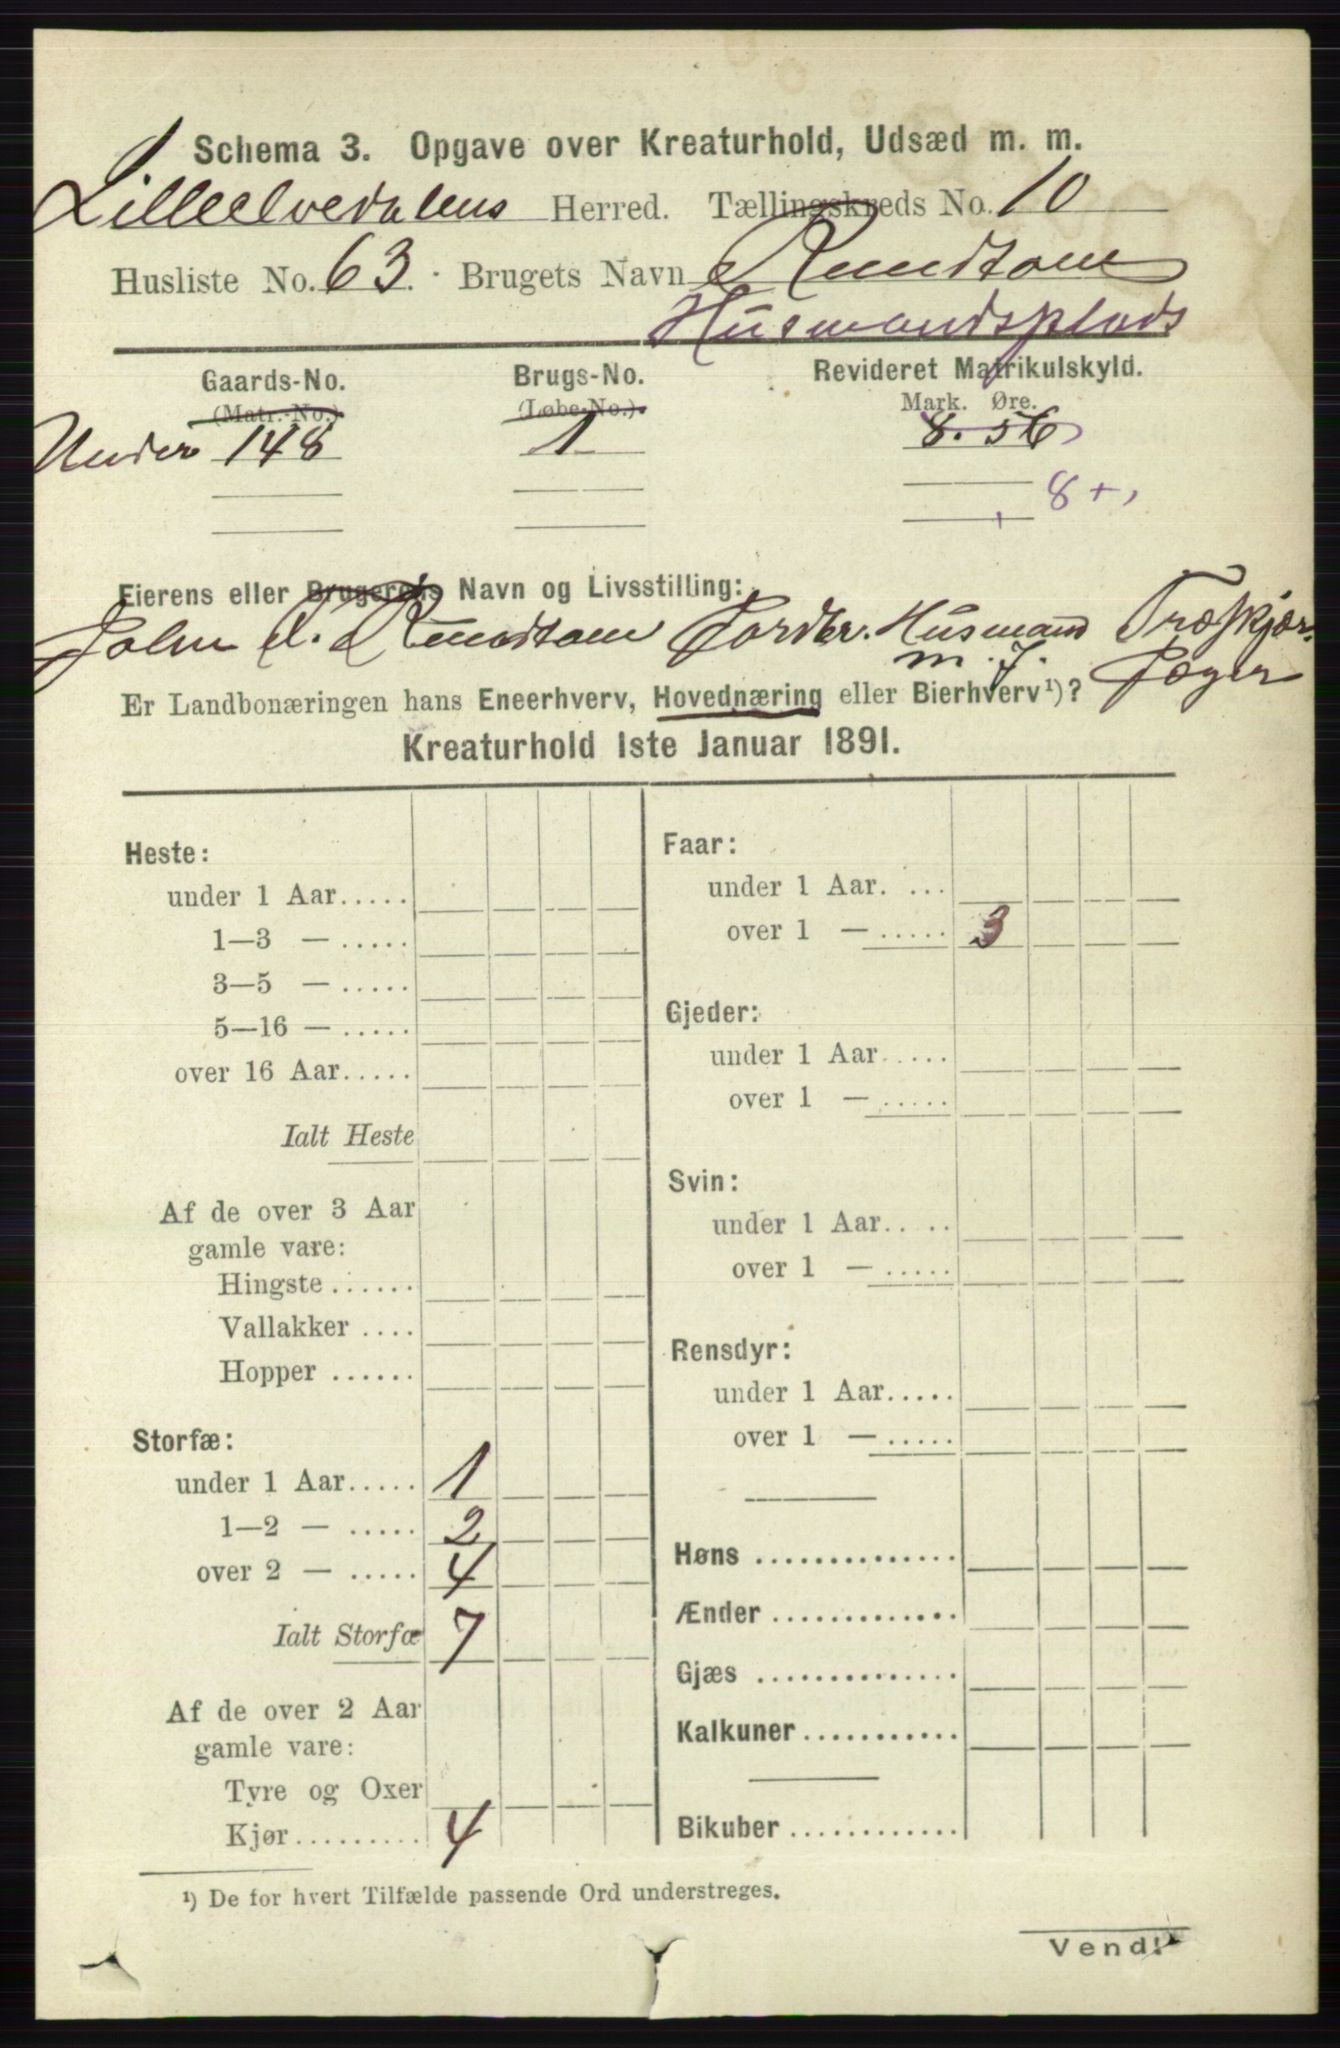 Schema 3. Opgave over Kreaturhold, Udsæd m. m.
Lilleelvedalens Herred. Tællingskreds No. 10
Husliste No. 63. Brugets Navn Rundtom
Husmandsplads
Gaards-No. Brugs-No. Revideret Matrikulskyld.
(Matr.-No.) (Løbe-No.) Mark. Øre.
Under 148 1 8. 56
8+,
Eierens eller Brugerens Navn og Livsstilling:
John Rundtom Jordbr. Husmand Træskjær.
m. J. Jæger
Er Landbonæringen hans Eneerhverv, Hovednæring eller Bierhverv¹)?
Kreaturhold 1ste Januar 1891.
Heste:
under 1 Aar.....
1—3 — .....
3—5 — .....
5—16 — .....
over 16 Aar.....
Ialt Heste
Af de over 3 Aar
gamle vare:
Hingste ......
Vallakker ....
Hopper ......
Storfæ:
under 1 Aar..... 1
1—2 — ..... 2
over 2 — ..... 4
Ialt Storfæ 7
Af de over 2 Aar
gamle vare:
Tyre og Oxer
Kjør......... 4
Faar:
under 1 Aar. ...
over 1 — ..... 3
Gjeder:
under 1 Aar.....
over 1 — .....
Svin:
under 1 Aar.. ..
over 1 — .....
Rensdyr:
under 1 Aar.....
over 1 — .....
Høns ..............
Ænder .............
Gjæs ..............
Kalkuner...........
Bikuber ............
¹) De for hvert Tilfælde passende Ord understreges.
Vend!